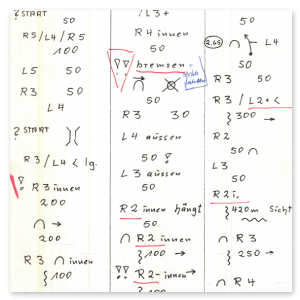 ? START
50
R5/L4/R5
100
L5 50
R3 50
L4
? START )(
R3/L4 < lg.
! R3 innen
200
∩ →
200
R3 ∩ innen
}100
/L3+
R4 innen
50
!! bremsen
50
R3 30
L4 aussen
50 !
L3 aussen
50
R2 innen hängt
50
∩ R2 innen
}100 →
!! R2- innen →
100
50
2,65 ∩ L4
50
R3 50
R3/L2+<
}300 →
R2
50 ∩
L3
50
R2i.
}420m Sicht
∩ R3
}250 →
∩ R4